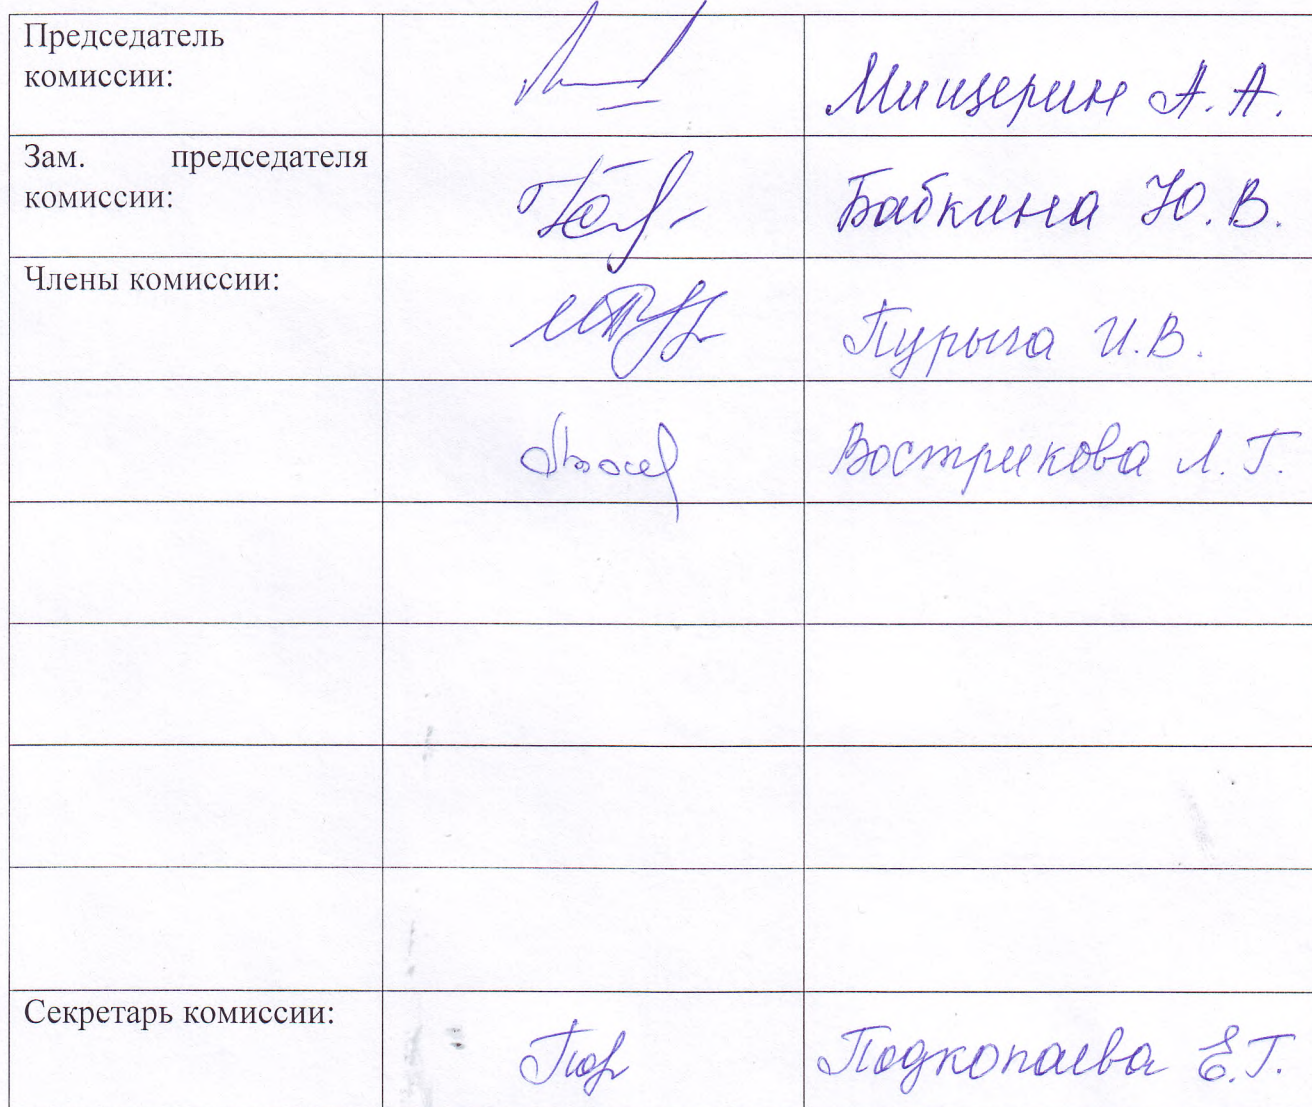 Председатель
комиссии:
Мищерин А. А.
Зам. председателя
комиссии:
Бабкина Ю. В.
Члены комиссии:
Пурыга И. В.
Вострикова Л. Г.
Секретарь комиссии:
Подкопаева Е. Г.